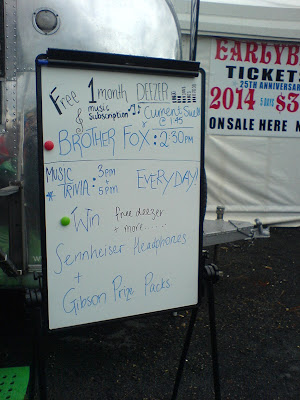 Free 1 month DEEZER
music
subscription
Current Swell
@ 1:45
BROTHER FOX : 2:30PM
MUSIC
TRIVIA : 3pm
+ 5pm
EVERYDAY!
Win free deezer
+ more......
Sennheiser Headphones
+
Gibson Prize Packs
EARLYB
TICKETS
25TH ANNIVERSAR
2014 5 DAYS $3
ON SALE HERE N